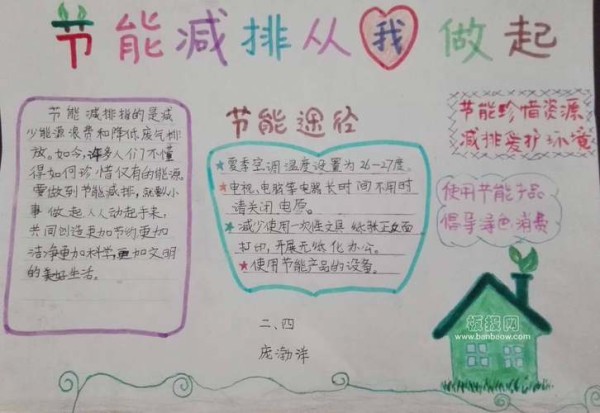 节能减排从我做起
节能减排指的是减
少能源浪费和降低废气排
放。如今,许多人们不懂
得如何珍惜仅有的能源。
要做到节能减排,就从小
事做起人人动起手来,
共同创造更加节约更加
洁净更加科学,更加文明
的美好生活。
节能途径
★夏季空调温度设置为26-27度。
★电视、电脑等电器长时间不用时
请关闭电原。
★减少使用一次性文具纸张正反面
打印,开展无纸化办公。
★使用节能产品的设备。
二、四
庞渤洋
节能珍惜资源
减排爱护环境
使用节能产品
倡导绿色消费
板报网
www.banbaow.com